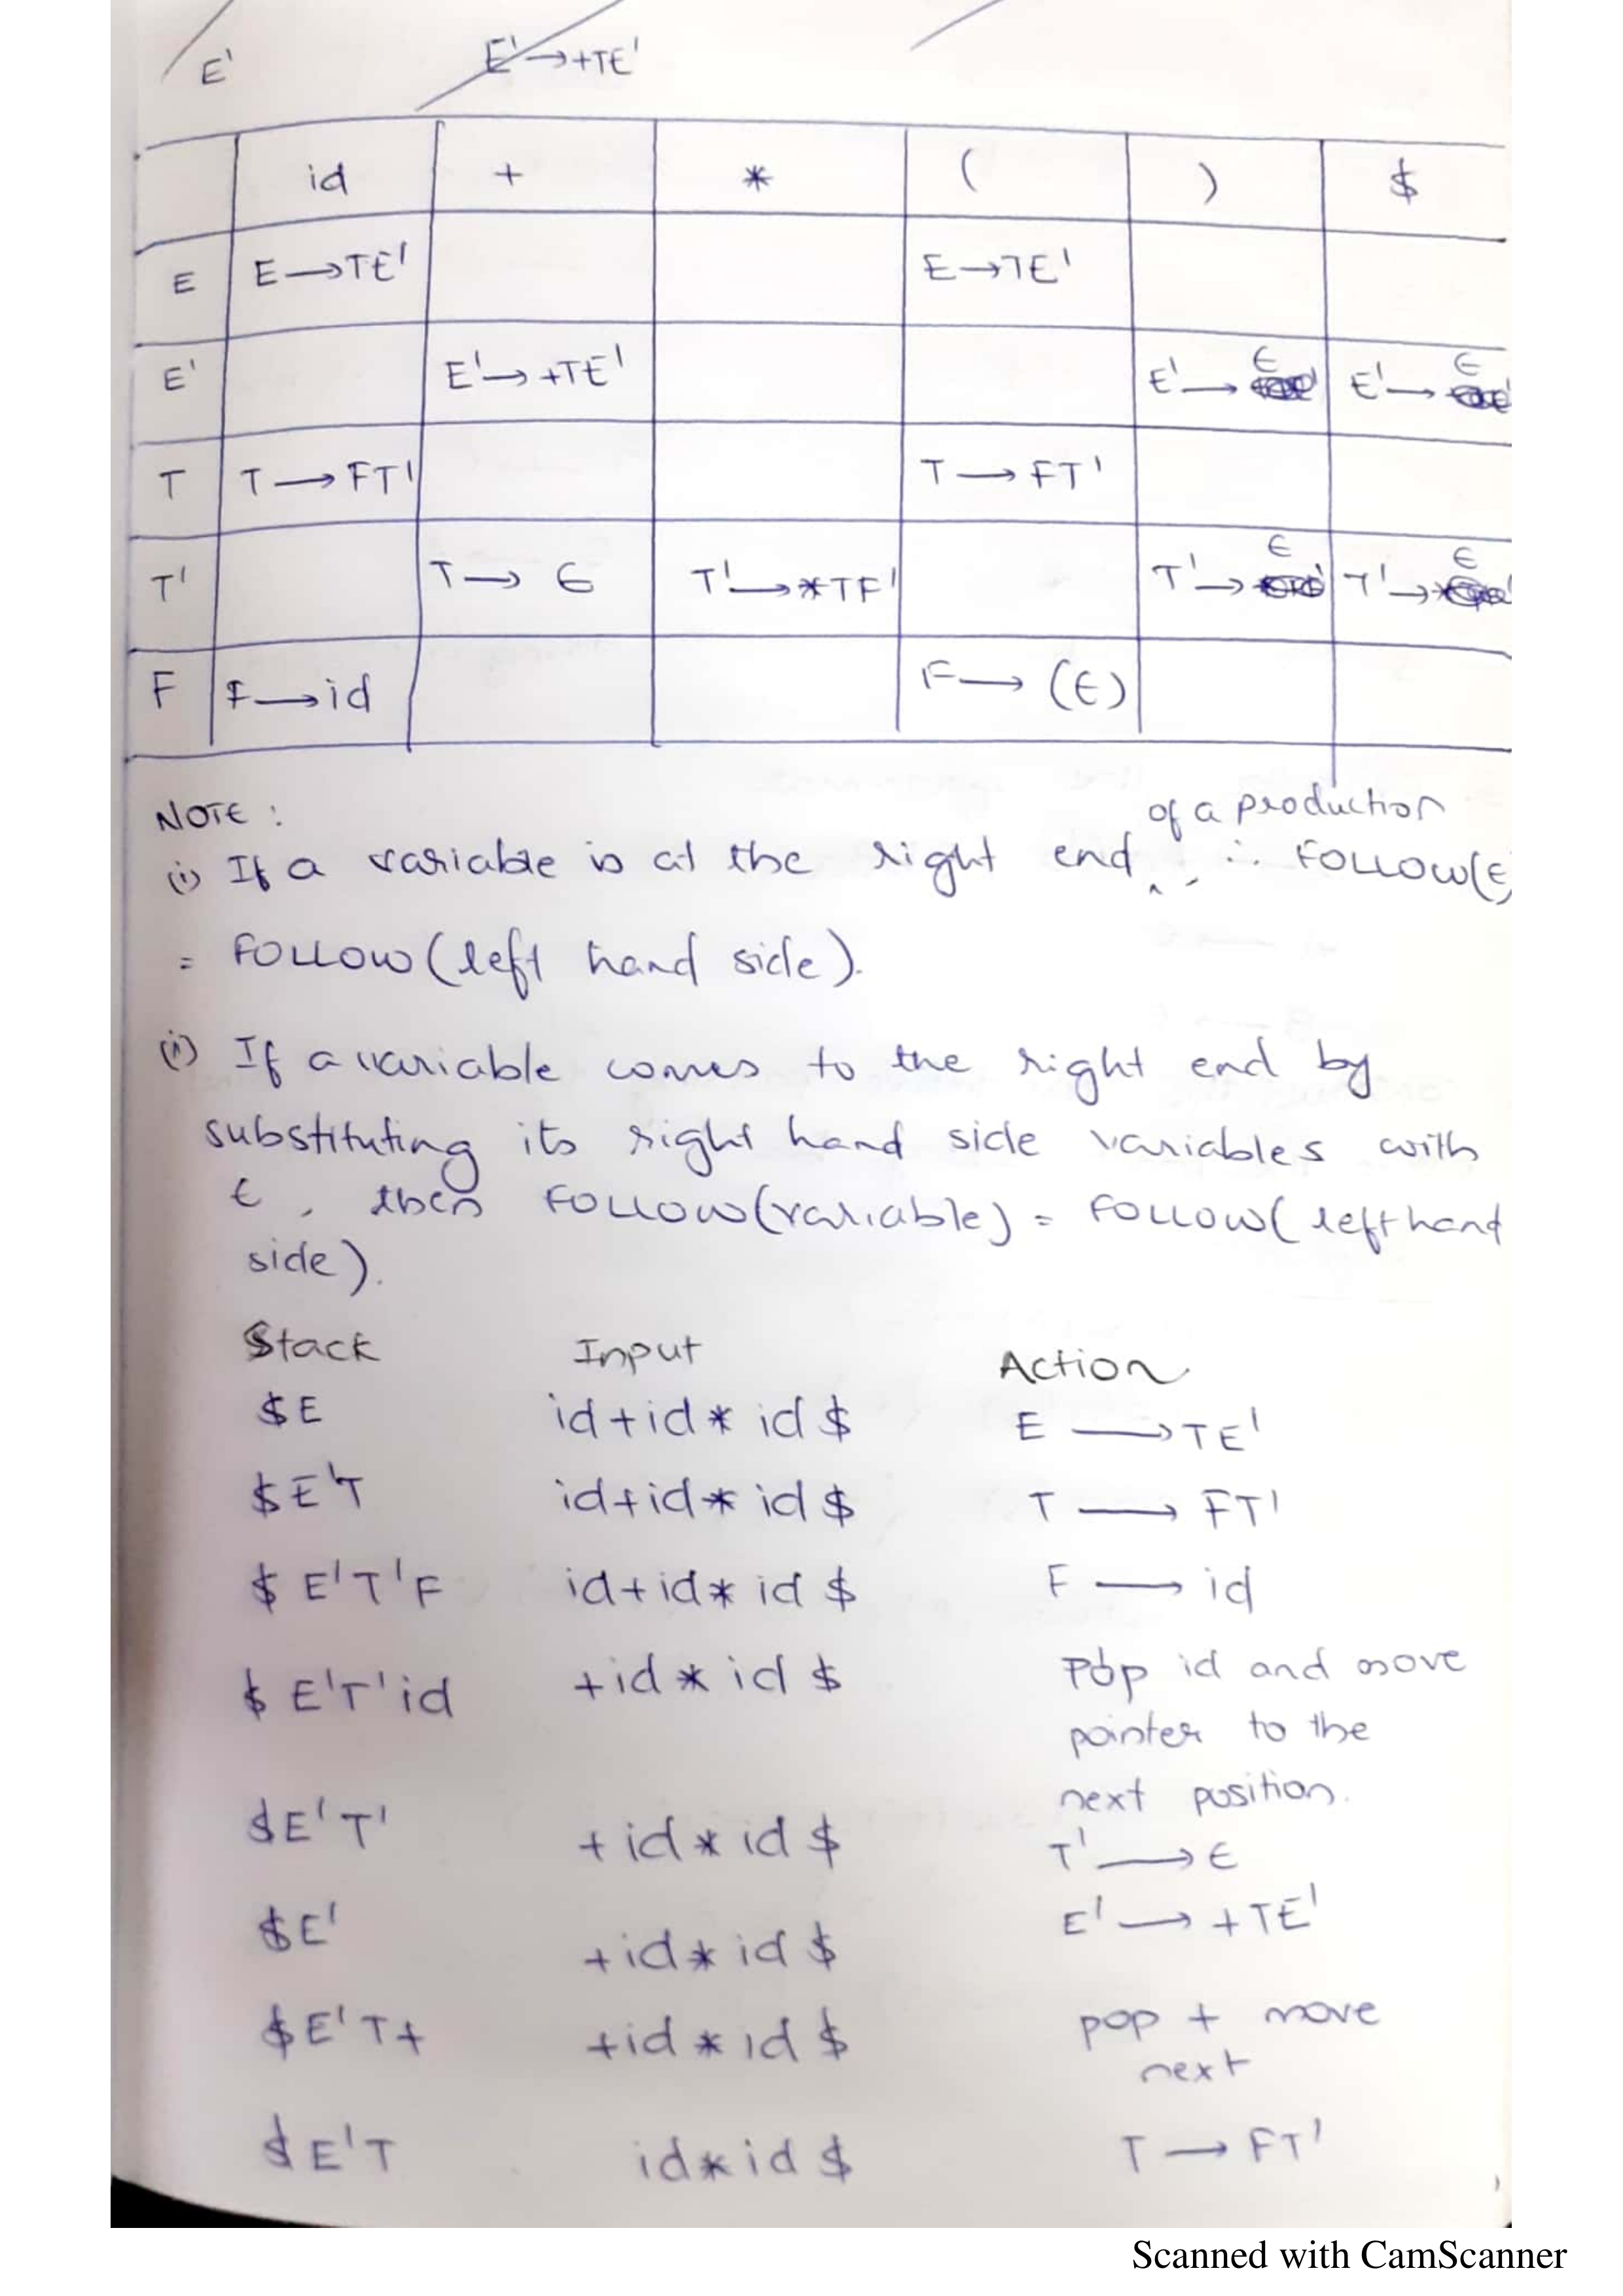 E' E'→+TE'
id + * ( ) $
E E→TE' E→TE'
E' E'→+TE' E'→ ϵ E'→ ϵ
T T→FT' T→FT'
T' T→ ϵ T'→*TF' T'→ ϵ T'→ ϵ
F F→id F→(E)
NOTE :
of a production
(i) If a variable is at the right end ^, ∴ FOLLOW(E)
= FOLLOW(left hand side).
(i) If a variable comes to the right end by
substituting its right hand side variables with
ϵ, then FOLLOW(variable) = FOLLOW(left hand
side).
Stack Input Action
$E id+id*id$ E→TE'
$E'T id+id*id$ T→FT'
$E'T'F id+id*id$ F→id
$E'T'id +id*id$ Pop id and move
pointer to the
next position.
$E'T' +id*id$ T'→ϵ
$E' +id*id$ E'→+TE'
$E'T+ +id*id$ pop + move
next
$E'T id*id$ T→FT'
Scanned with CamScanner